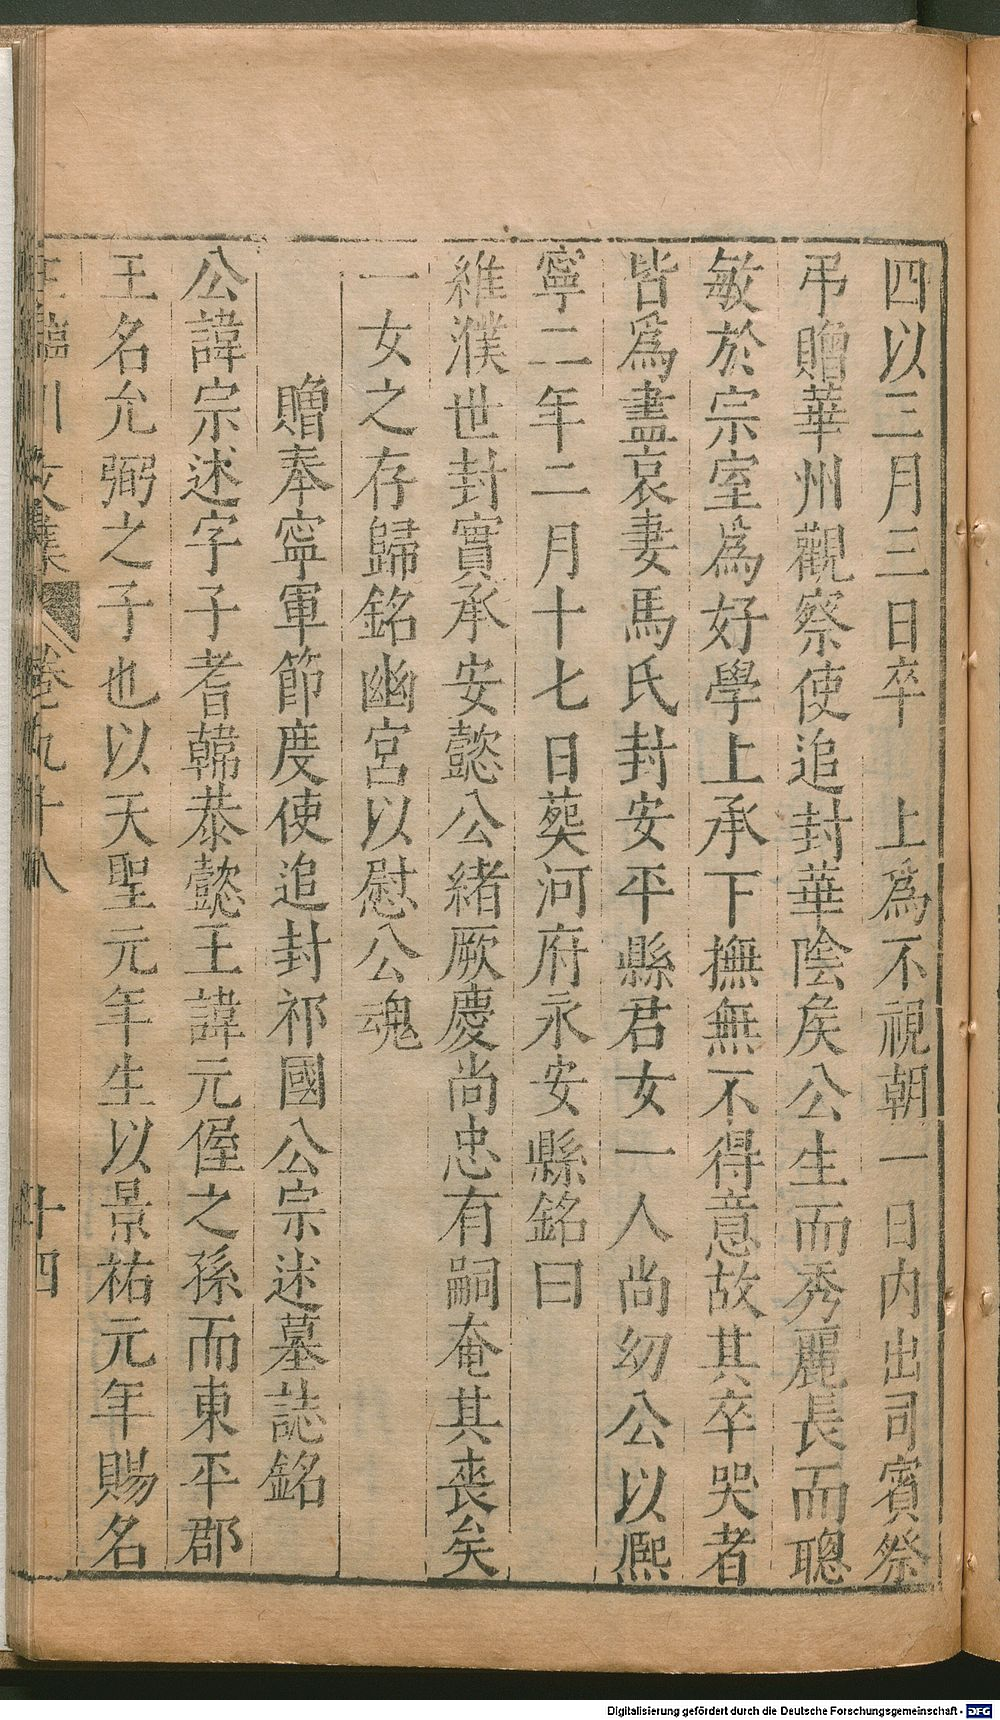 四以三月三日卒　上爲不視朝一日內出司賓祭
弔贈華州觀察使追封華陰矦公生而秀麗長而聰
敏於宗室爲好學上承下撫無不得意故其卒哭者
皆爲盡哀妻馬氏封安平縣君女一人尚幼公以熈
寧二年二月十七日葬河府永安縣銘曰
維濮世封實承安懿公緒厥慶尚忠有嗣奄其喪矣
一女之存歸銘幽宮以慰公魂
贈奉寧軍節度使追封祁國公宗述墓誌銘
公諱宗述字子耆韓恭懿王諱元偓之孫而東平郡
王名允弼之子也以天聖元年生以景祐元年賜名
王臨川文集 卷九十八 十四
Digitalisierung gefördert durch die Deutsche Forschungsgemeinschaft - DFG